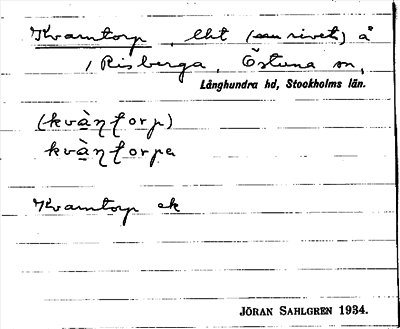 Kvarntorp, lht (nu rivet) å
/ Risberga, Östuna sn,
Långhundra hd, Stockholms län.
(kvà̱ṇṭorp)
kvà̱ṇṭorpa
Kvarntorp ek
JÖRAN SAHLGREN 1934.